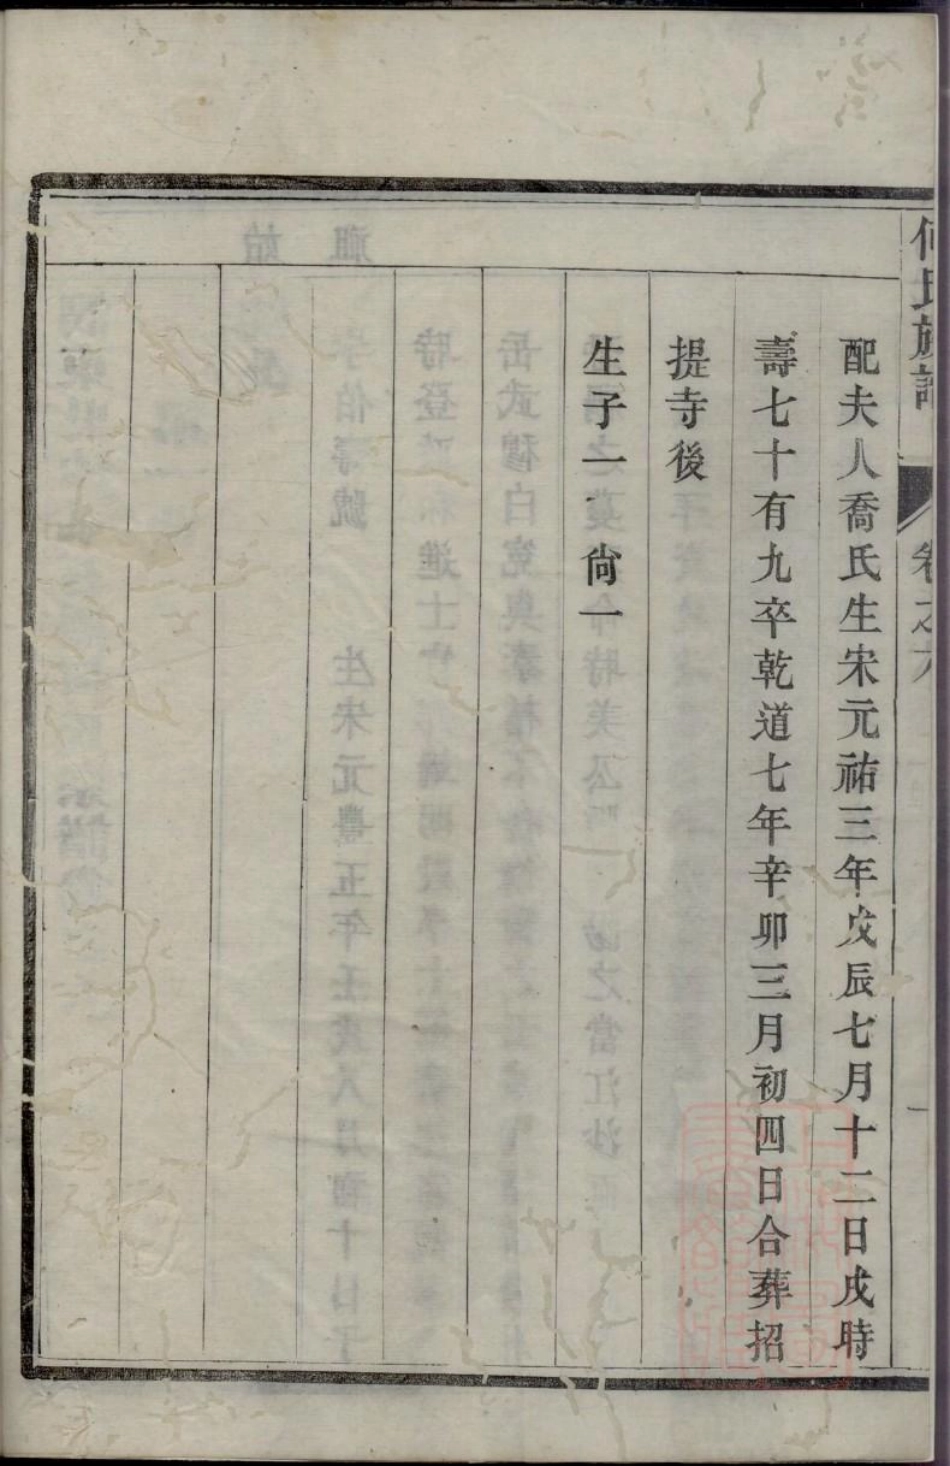 何氏族譜
卷之六
配夫人喬氏生宋元祐三年戊辰七月十二日戌時
壽七十有九卒乾道七年辛卯三月初四日合葬招
提寺後
生子一尙一